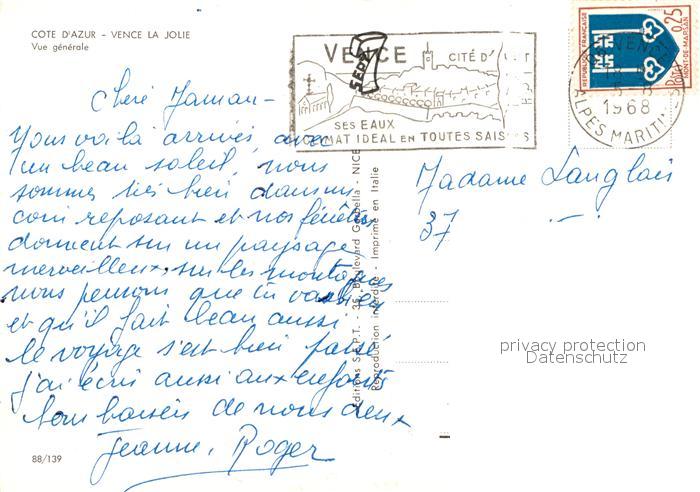 COTE D'AZUR - VENCE LA JOLIE
Vue générale
VENCE
CITÉ D'
SES EAUX
CLIMAT IDEAL EN TOUTES SAISONS
REPUBLIQUE FRANÇAISE
0,25
POSTES
MONT-DE-MARSAN
VENCE
1968
ALPES MARITIMES
Chère Maman -
Nous voilà arrivés avec
un beau soleil, nous
sommes très bien dans un
coin reposant et nos fenêtres
donnent sur un paysage
merveilleux, sur les montagnes
nous pensons que tu vas bien
et qu'il fait beau aussi
le voyage s'est bien passé
j'ai écrit aussi aux enfants
bons baisers de nous deux
Jeanne, Roger
88/139
Editions S.E.P.T. - 35, Boulevard Gorbella - NICE
Reproduction interdite - Imprimé en Italie
Madame Langlais
37
privacy protection
Datenschutz